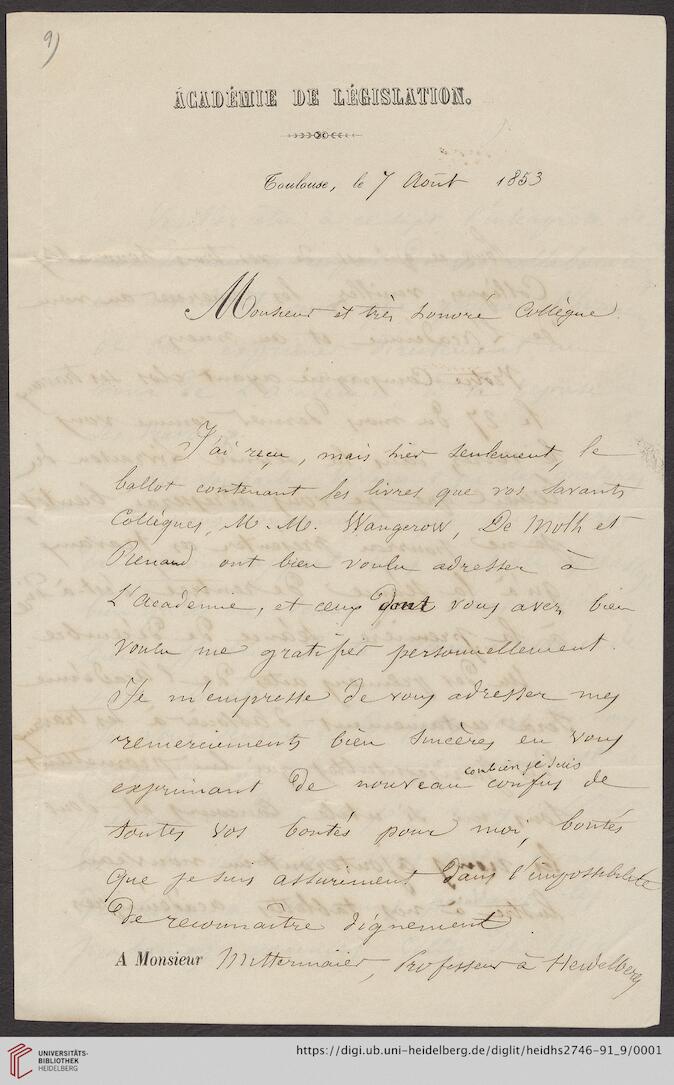 9)
ACADÉMIE DE LÉGISLATION.
Toulouse, le 7 Août 1853
Monsieur et très honoré Collègue.
J'ai reçu, mais hier seulement, le
ballot contenant les livres que vos savants
Collègues, M. M. Wangerow, De Molh et
Renaud ont bien voulu adresser à
L'académie, et ceux dont vous avez bien
voulu me gratifier personnellement.
Je m'empresse de vous adresser mes
remerciements bien sincères en vous
exprimant de nouveau combien je suis confus de
toutes vos bontés pour moi, bontés
que je suis assurément dans l'impossibilité
de reconnaître dignement.
A Monsieur Mittermaier, Professeur à Heidelberg
UNIVERSITÄTS-
BIBLIOTHEK
HEIDELBERG
https://digi.ub.uni-heidelberg.de/diglit/heidhs2746-91_9/0001